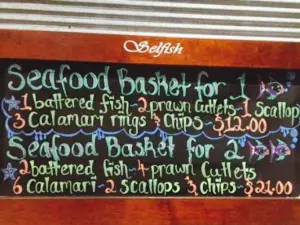 Selfish
Seafood Basket for 1
1 battered fish ~ 2 prawn Cutlets ~ 1 Scallop
3 Calamari rings & Chips ~ $12.00
Seafood Basket for 2
2 battered fish ~ 4 prawn Cutlets
6 Calamari ~ 2 Scallops & Chips ~ $21.00